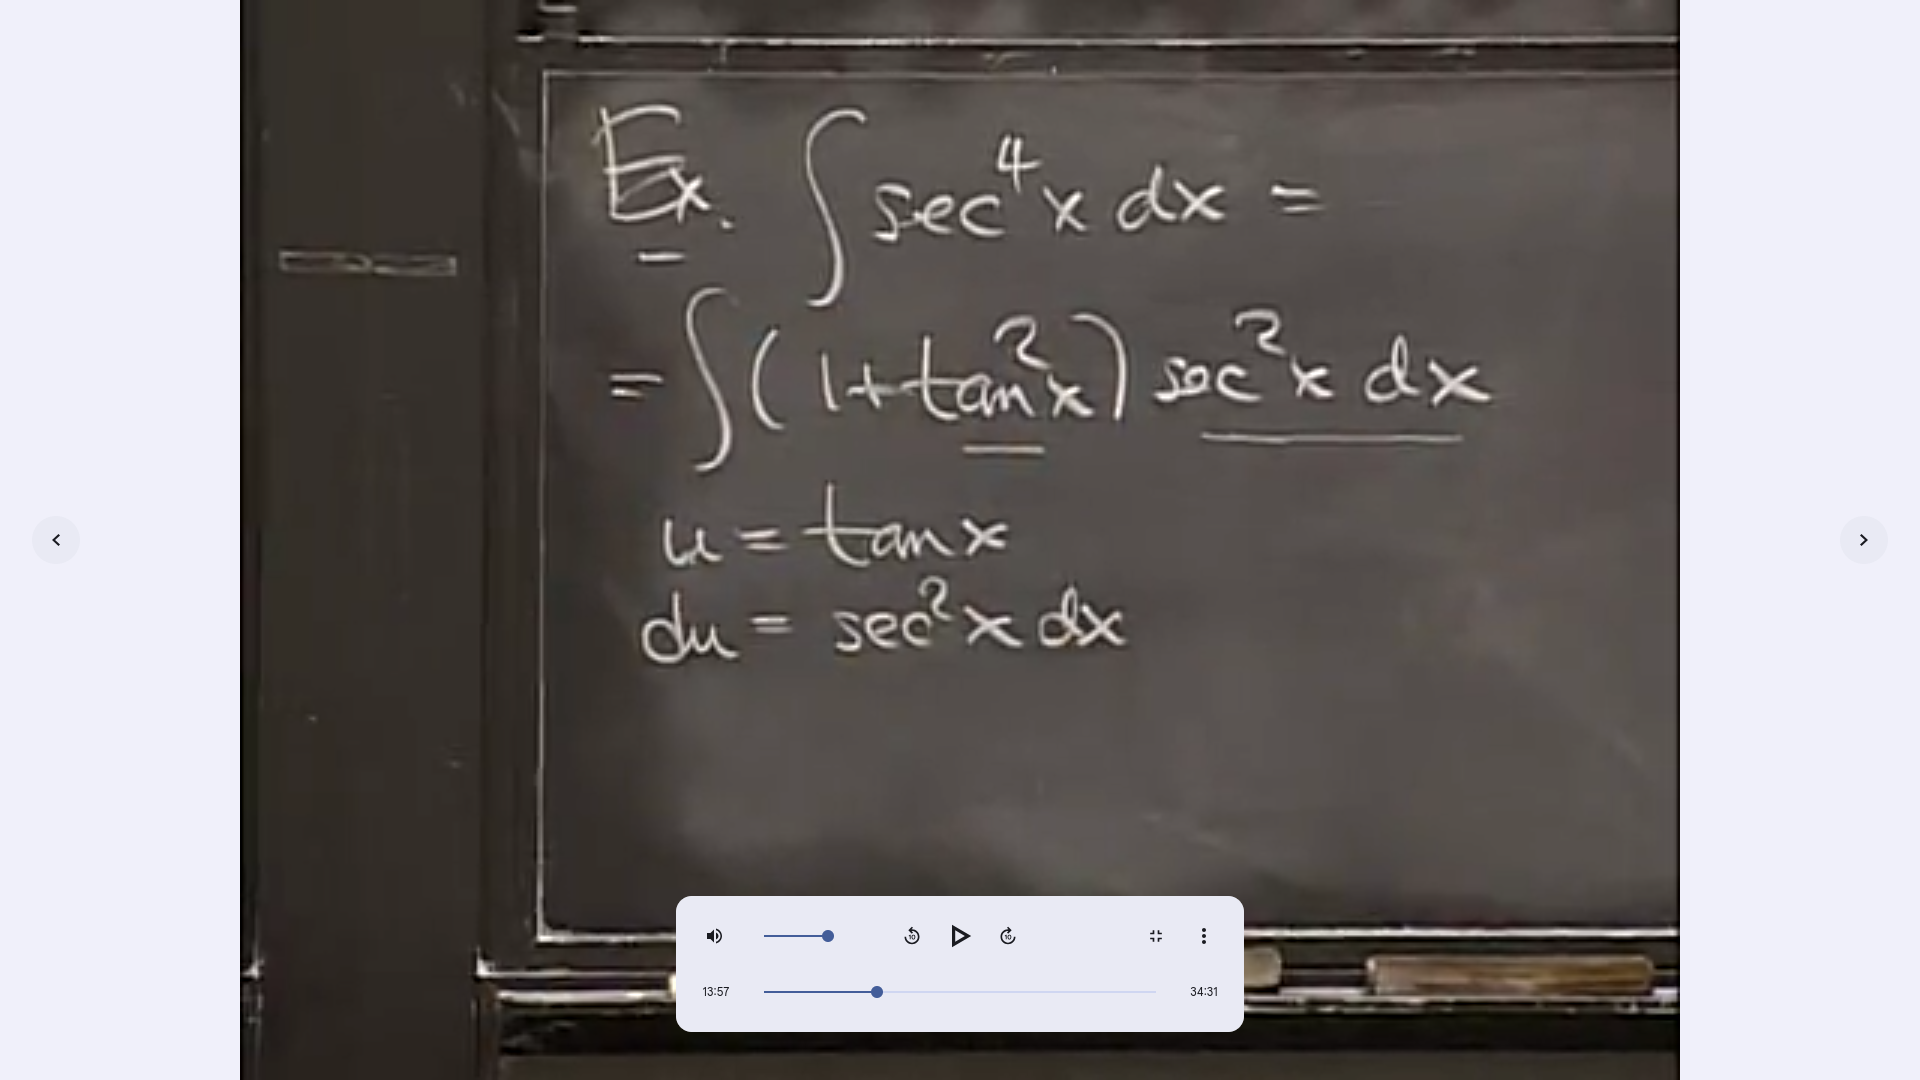 Ex. ∫ sec⁴x dx =
= ∫ (1+tan²x) sec²x dx
u = tan x
du = sec²x dx
10
10
13:57
34:31